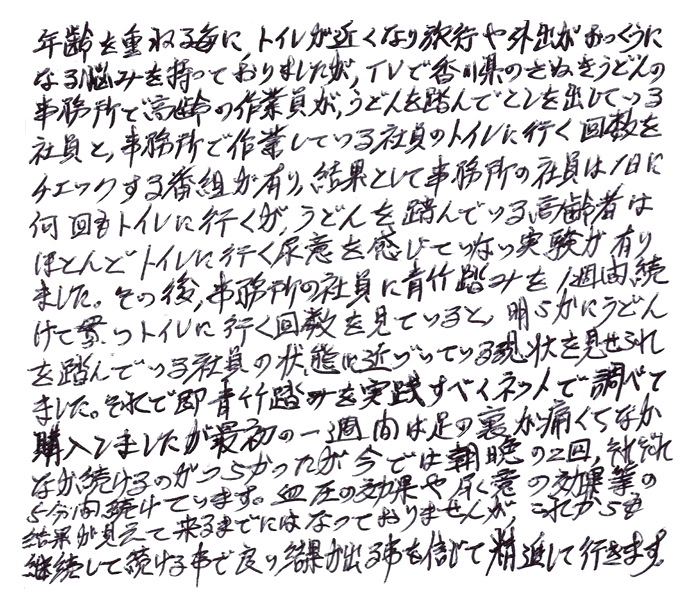 年齢を重ねる毎に、トイレが近くなり旅行や外出がおっくうに
なる悩みを持っておりましたが、TVで香川県のさぬきうどんの
事務所で高齢の作業員が、うどんを踏んでコシを出している
社員と、事務所で作業している社員のトイレに行く回数を
チェックする番組が有り、結果として事務所の社員は1日に
何回もトイレに行くが、うどんを踏んでいる高齢者は
ほとんどトイレに行く尿意を感じていない実験が有り
ました。その後、事務所の社員に青竹踏みを1週間続
けて貰いトイレに行く回数を見ていると、明らかにうどん
を踏んでいる社員の状態に近づいている現状を見せられ
ました。それで即青竹踏みを実践すべくネットで調べて
購入しましたが最初の一週間は足の裏が痛くてなか
なか続けるのがつらかったが今では朝晩の2回、それぞれ
5分間続けています。血圧の効果や尿意の効果等の
結果が見えて来るまでにはなっておりませんが、これからも
継続して続ける事で良い結果が出る事を信じて精進して行きます。